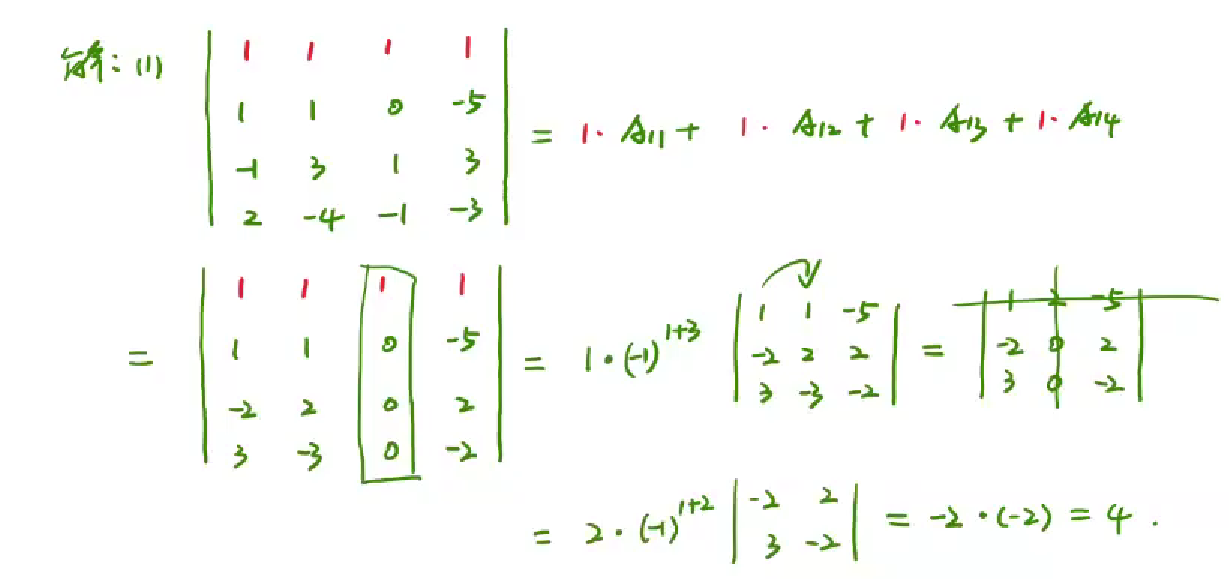 解：(1) | 1 1 1 1 |
| 1 1 0 -5 | = 1· A11 + 1· A12 + 1· A13 + 1· A14
| -1 3 1 3 |
| 2 -4 -1 -3 |
= | 1 1 1 1 |
| 1 1 0 -5 |
| -2 2 0 2 |
| 3 -3 0 -2 |
= 1·(-1)^{1+3} | 1 1 -5 |
| -2 2 2 |
| 3 -3 -2 |
= | 1 2 -5 |
| -2 0 2 |
| 3 0 -2 |
= 2·(-1)^{1+2} | -2 2 | = -2·(-2) = 4 .
| 3 -2 |